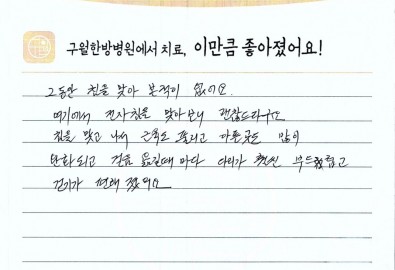 구월한방병원에서 치료, 이만큼 좋아졌어요!
그동안 침을 맞아 본적이 없어요.
여기에서 전자침을 맞아보니 괜찮더라구요
침을 맞고 나서 근육도 풀리고 아픈곳도 많이
완화되고 걸음 옮길때 마다 다리가 훨씬 부드럽고
걷기가 편해 졌어요